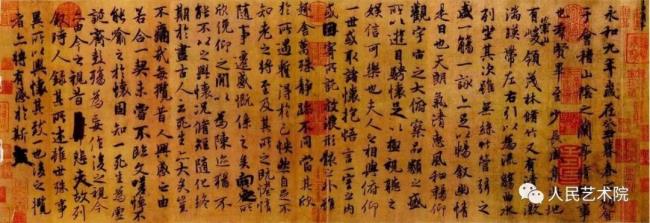 永和九年歲在癸丑暮春之初會
于會稽山陰之蘭亭脩稧事
也群賢畢至少長咸集此地
有崇山峻領茂林脩竹又有清流激
湍暎帶左右引以為流觴曲水
列坐其次雖無絲竹管弦之
盛一觴一詠亦足以暢敘幽情
是日也天朗氣清惠風和暢仰
觀宇宙之大俯察品類之盛
所以遊目騁懷足以極視聽之
娛信可樂也夫人之相與俯仰
一世或取諸懷抱悟言一室之內
或因寄所託放浪形骸之外雖
趣舍萬殊靜躁不同當其欣
於所遇暫得於己怏然自足不
知老之將至及其所之既惓情
隨事遷感慨係之矣向之所
欣俛仰之間以為陳跡猶不
能不以之興懷況脩短隨化終
期於盡古人云死生亦大矣豈
不痛哉每攬昔人興感之由
若合一契未嘗不臨文嗟悼不
能喻之於懷固知一死生為虛
誕齊彭殤為妄作後之視今
亦由今之視昔悲夫故列
敘時人錄其所述雖世殊事
異所以興懷其致一也後之攬
者亦將有感於斯
人民艺术院